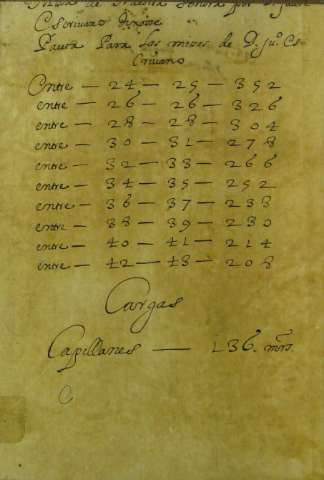 de Nuestra Señora por
Escriuano
Pauta Para los meses de D. Juº Es-
criuano
Entre — 24 — 25 — 352
entre — 26 — 26 — 326
entre — 28 — 28 — 304
entre — 30 — 31 — 278
entre — 32 — 33 — 266
entre — 34 — 35 — 252
entre — 36 — 37 — 238
entre — 38 — 39 — 230
entre — 40 — 41 — 214
entre — 42 — 43 — 208
Cargas
Capillanes — 136. mrs.
C